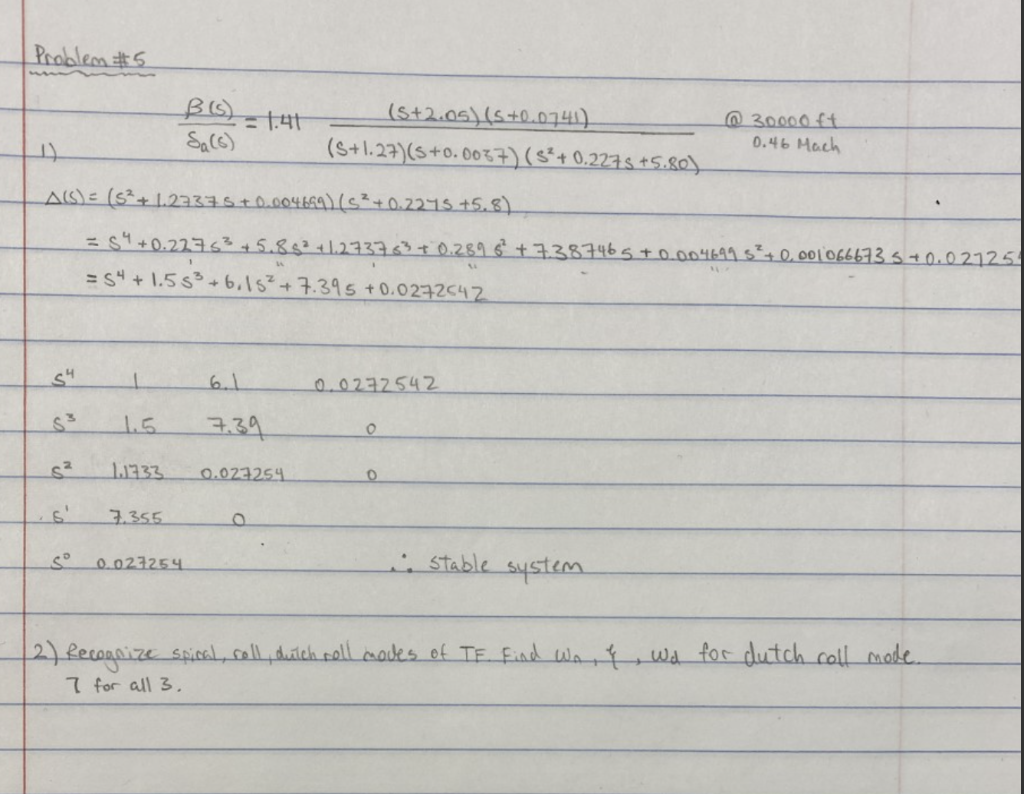 Problem #5
β(s)/δa(s) = 1.41 (s+2.05)(s+0.0741) / (s+1.27)(s+0.0037)(s²+0.227s+5.80) @ 30000 ft
0.46 Mach
1)
Δ(s) = (s²+1.2737s+0.004699)(s²+0.227s+5.8)
= s⁴+0.227s³+5.8s²+1.2737s³+0.289s²+7.38746s+0.004699s²+0.001066673s+0.02725
= s⁴+1.5s³+6.1s²+7.39s+0.0272542
s⁴ 1 6.1 0.0272542
s³ 1.5 7.39 0
s² 1.1733 0.027254 0
s¹ 7.355 0
s⁰ 0.027254 ∴ stable system
2) Recognize spiral, roll, dutch roll modes of TF. Find ωn, ξ, ωd for dutch roll mode.
τ for all 3.